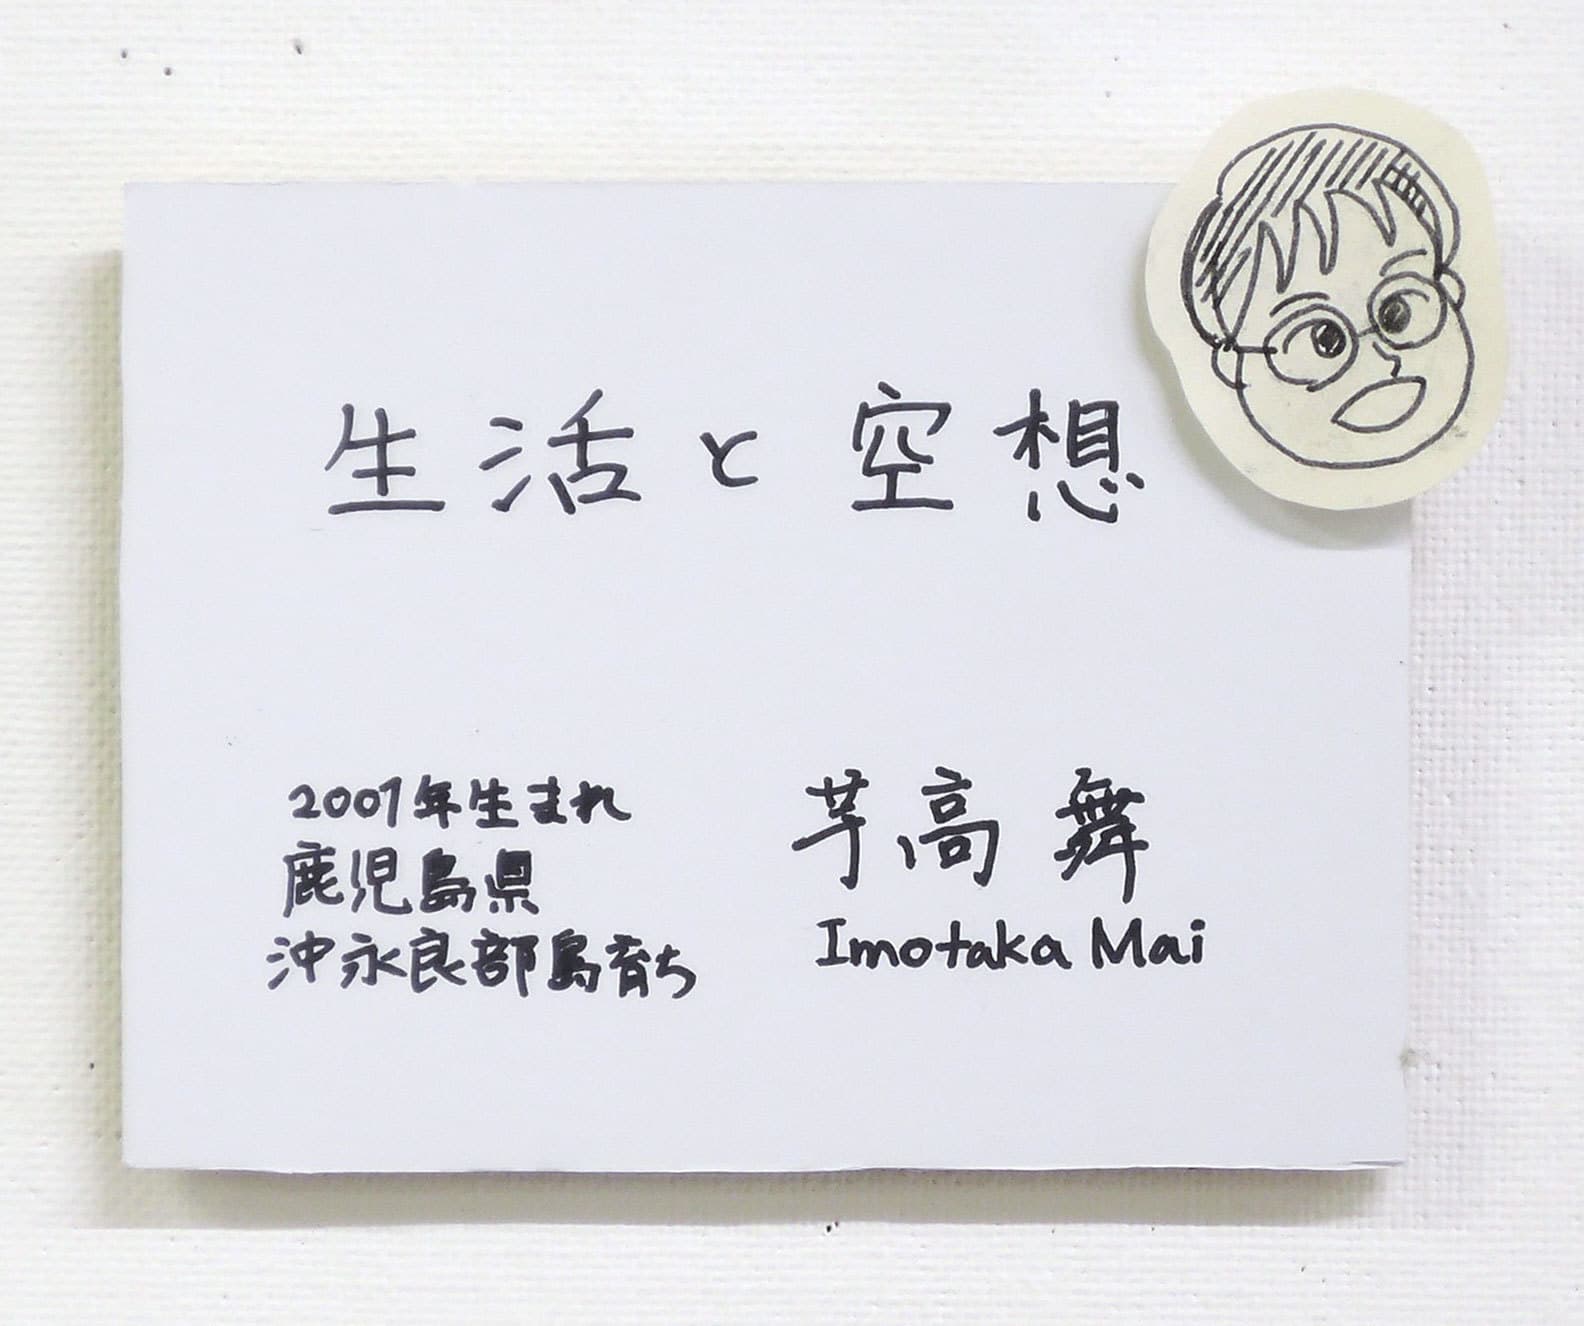 生活と空想
2001年生まれ
鹿児島県
沖永良部島育ち
芋高 舞
Imotaka Mai